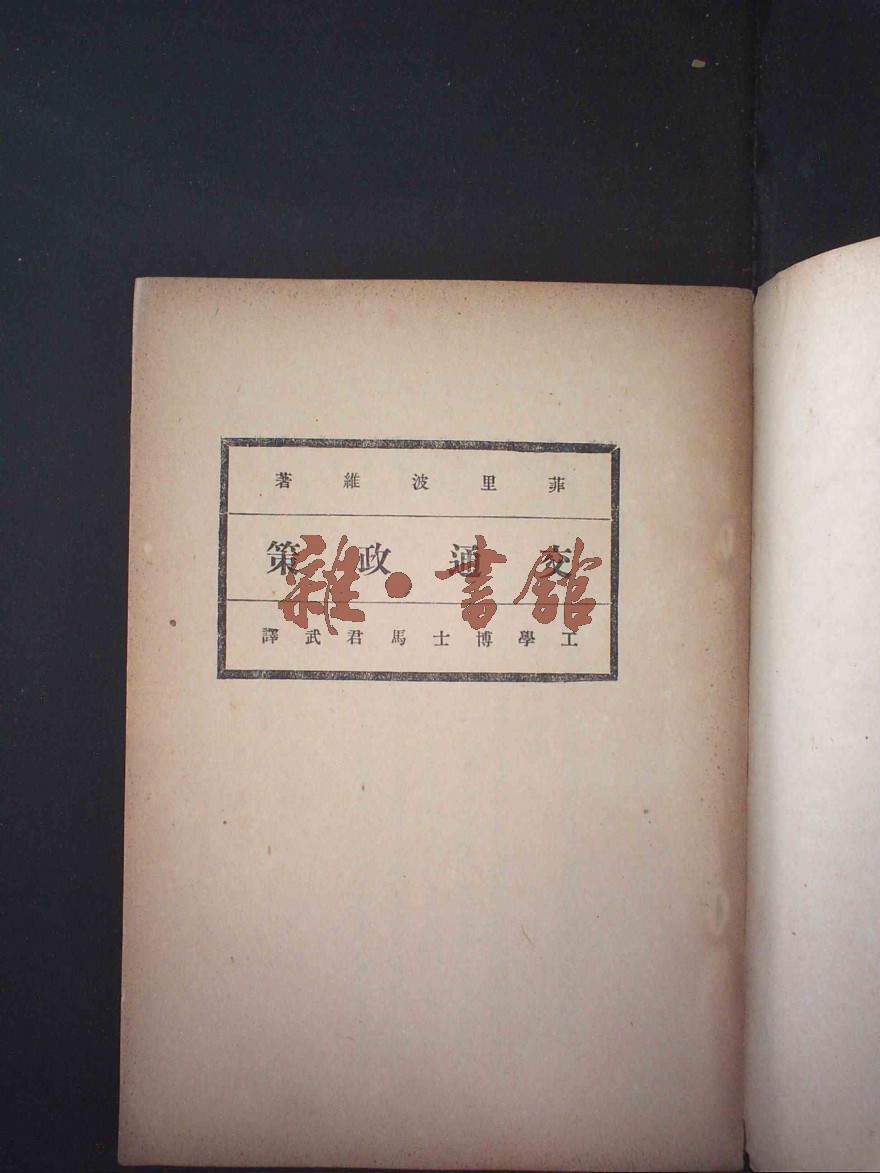 菲里波維著
交通政策
工學博士馬君武譯
雜·書館